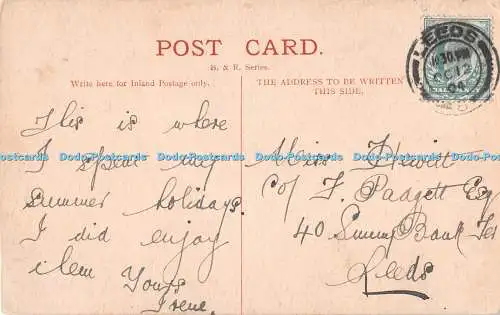 POST CARD.
B. & R. Series.
Write here for Inland Postage only.
THE ADDRESS TO BE WRITTEN
THIS SIDE.
LEEDS
This is where
I spent my
summer holidays.
I did enjoy
them Yours
Irene.
Miss Hewitt
c/o F. Padgett Esq
40 Sunny Bank Ter
Leeds
Dodo-Postcards Dodo-Postcards Dodo-Postcards Dodo-Postcards Dodo-Postcards